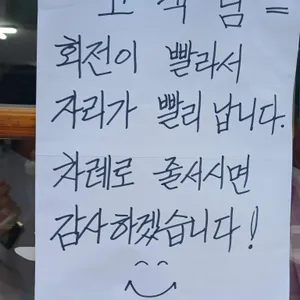 고객님=
회전이 빨라서
자리가 빨리 납니다.
차례로 줄서시면
감사하겠습니다!